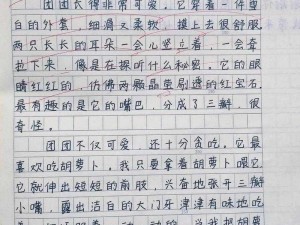 团团长得非常可爱。它穿着一件雪
白的外套，细滑又柔软，摸上去很舒服
两只长长的耳朵一会心竖立着，一会耷
拉下来，像是在探听什么秘密。它的眼
睛红红的，仿佛两颗晶莹剔透的红宝石
最有趣的是它的嘴巴，分成了三瓣，很
奇怪。
团团不仅可爱，还十分贪吃。它最
喜欢吃胡萝卜。我只要拿着胡萝卜喂它
它就伸出短短的前肢，兴奋地张开三瓣
小嘴，露出洁白的大门牙津津有味地吃
动一动的，当我把胡萝